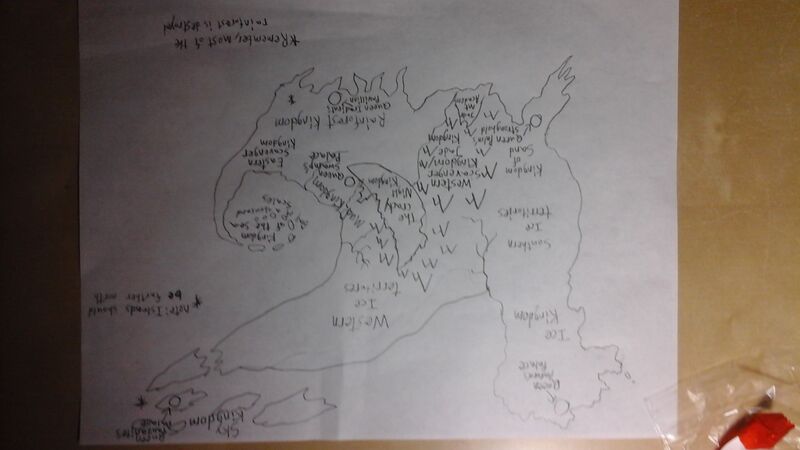 Sky
Kingdom
Queen
Palace
Queen
Palace
Ice
Kingdom
* note: Islands should
be farther north
Western
Ice
territories
Southern
Ice
territories
Kingdom
of the Sea
Mud Kingdom
The
Night
Kingdom
Queen
Swamp's
Palace
Eastern
Scavenger
Kingdom
Western
Scavenger
Kingdom/
Jade
Kingdom
Kingdom
of
Sand
Queen
Stronghold
Jade
Mt
Academy
Rainforest Kingdom
Queen
Pavillion
*Remember, most of the
rainforest is destroyed